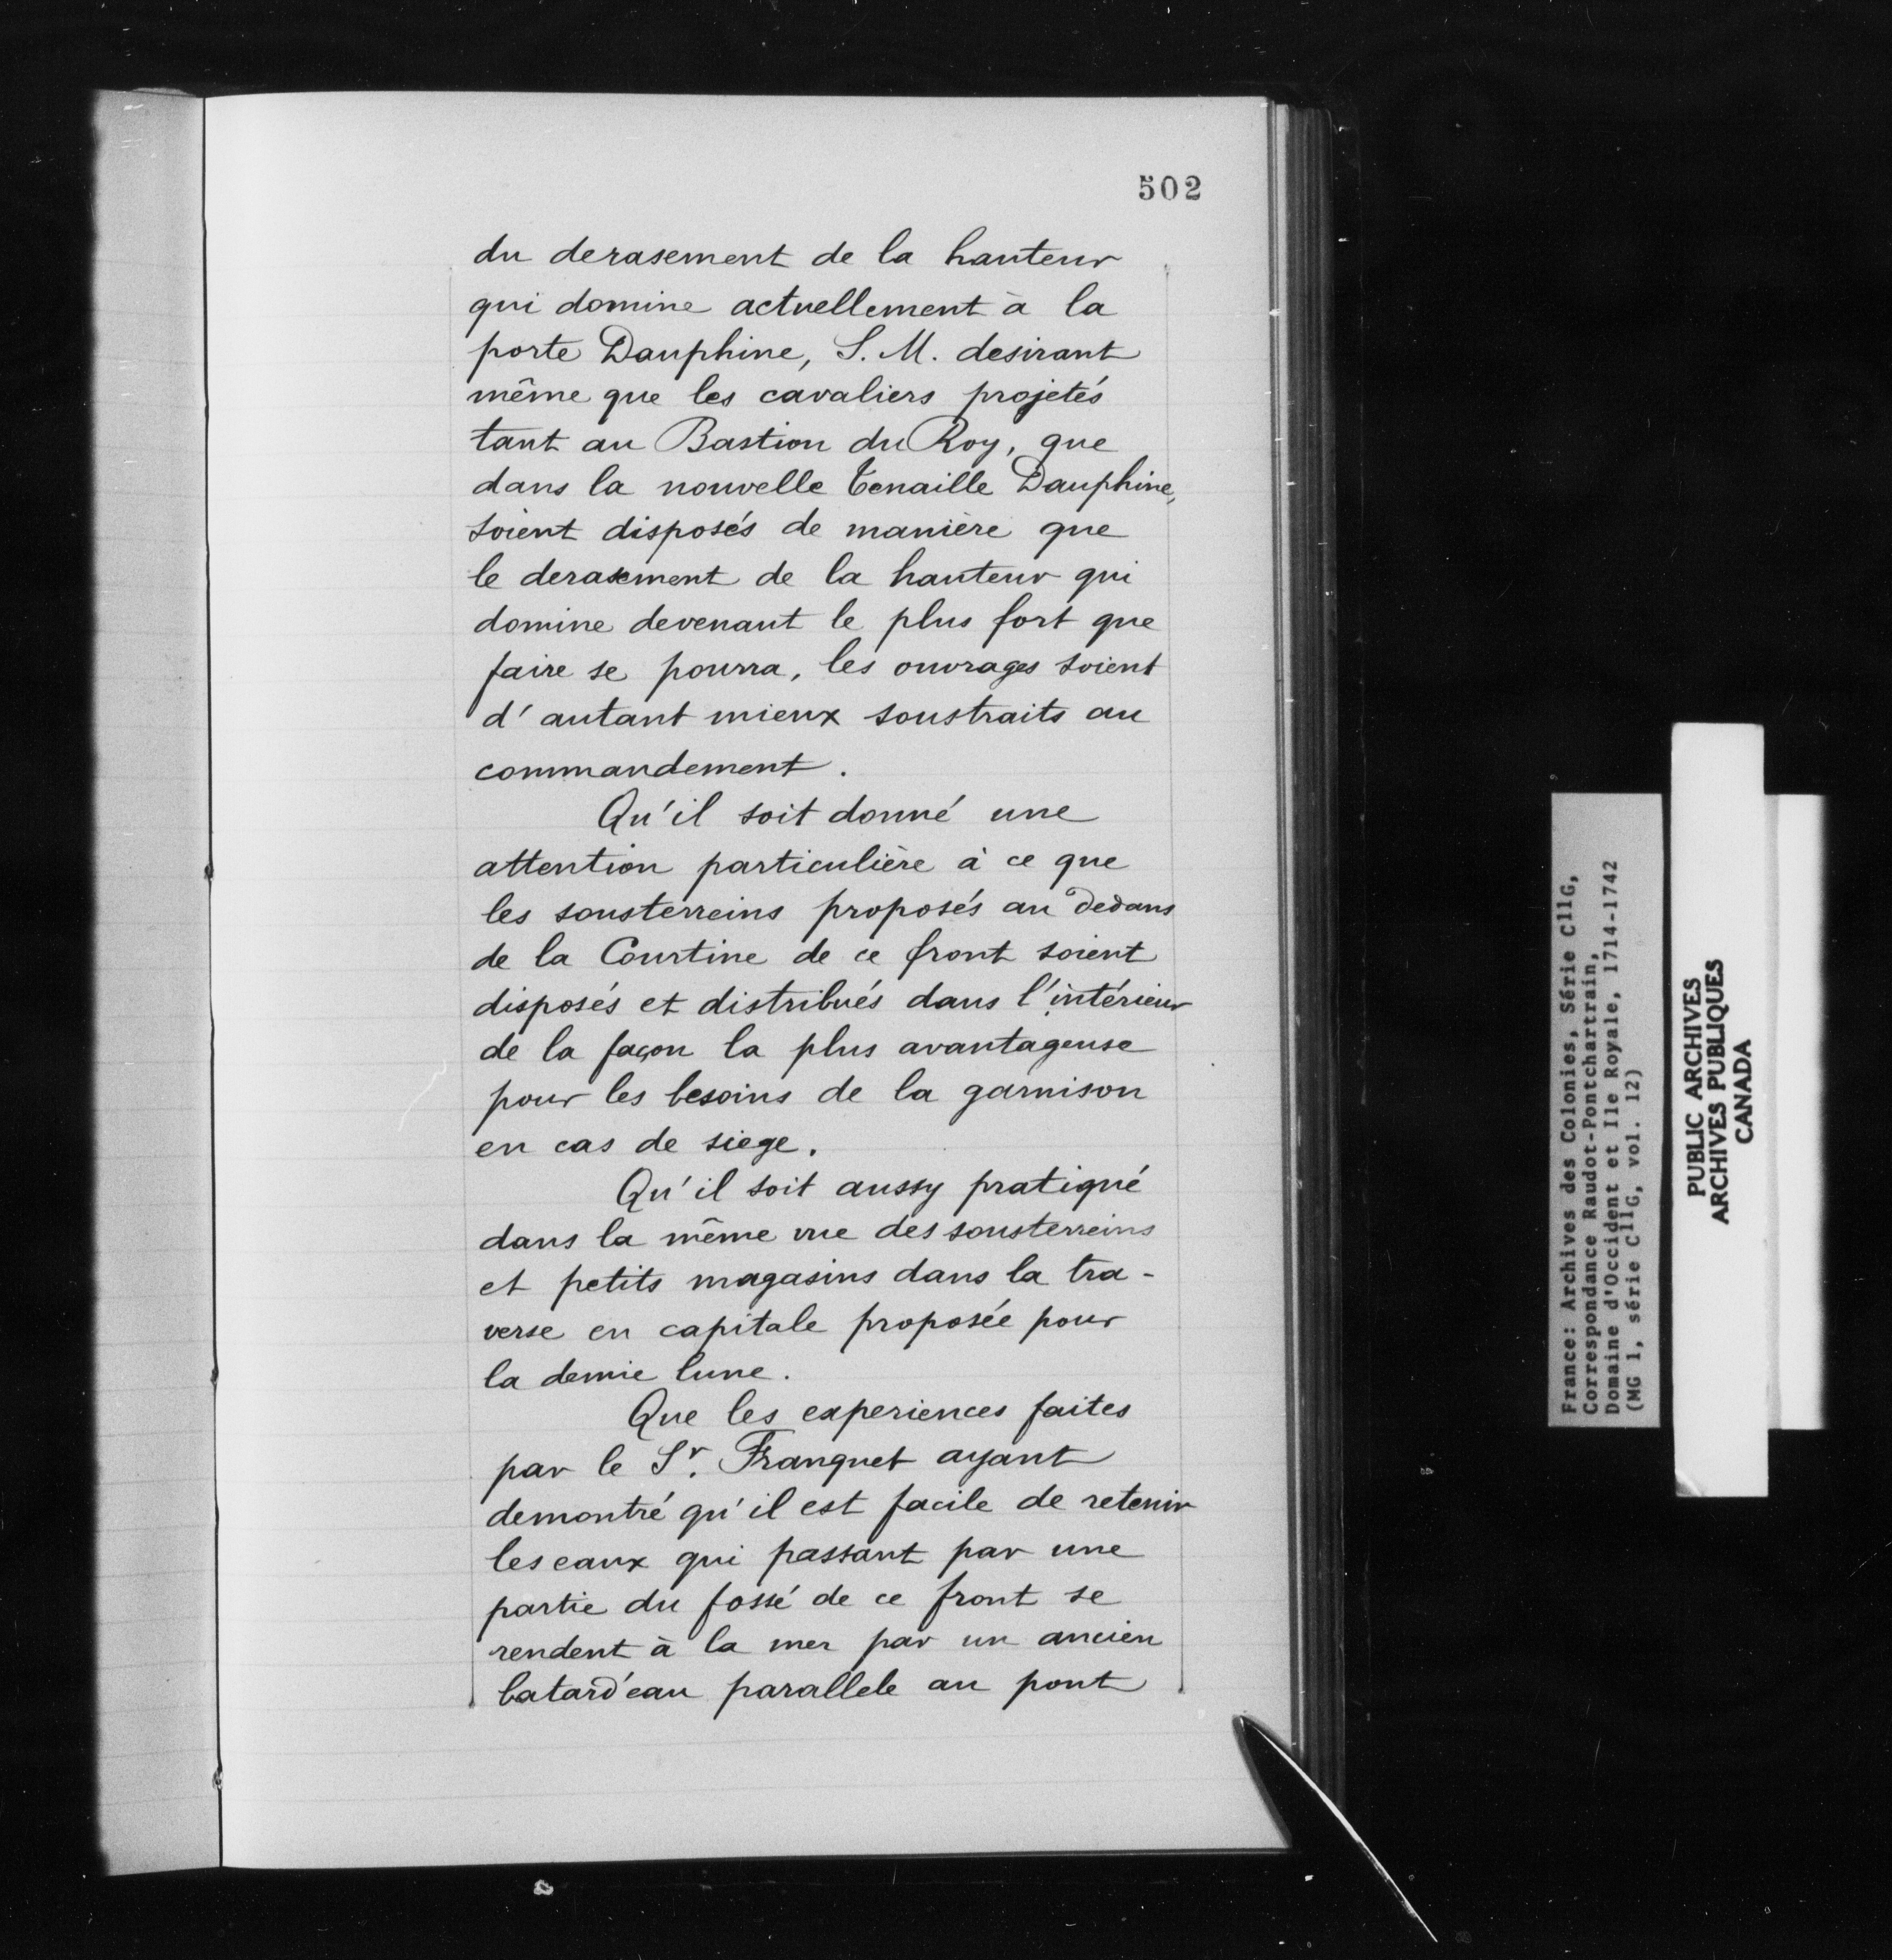 502
du derasement de la hauteur
qui domine actuellement à la
porte Dauphine, S. M. desirant
même que les cavaliers projetés
tant au Bastion du Roy, que
dans la nouvelle Tenaille Dauphine,
soient disposés de manière que
le derasement de la hauteur qui
domine devenant le plus fort que
faire se pourra, les ouvrages soient
d'autant mieux soustraits au
commandement.
Qu'il soit donné une
attention particulière à ce que
les sousterreins proposés au dedans
de la Courtine de ce front soient
disposés et distribués dans l'intérieur
de la façon la plus avantageuse
pour les besoins de la garnison
en cas de siege.
Qu'il soit aussy pratiqué
dans la même vue des sousterreins
et petits magasins dans la tra-
verse en capitale proposée pour
la demie lune.
Que les experiences faites
par le Sr. Franquet ayant
demontré qu'il est facile de retenir
les eaux qui passant par une
partie du fossé de ce front se
rendent à la mer par un ancien
batard'eau parallele au pont
France: Archives des Colonies, Série C11G,
Correspondance Raudot-Pontchartrain,
Domaine d'Occident et Ile Royale, 1714-1742
(MG 1, série C11G, vol. 12)
PUBLIC ARCHIVES
ARCHIVES PUBLIQUES
CANADA